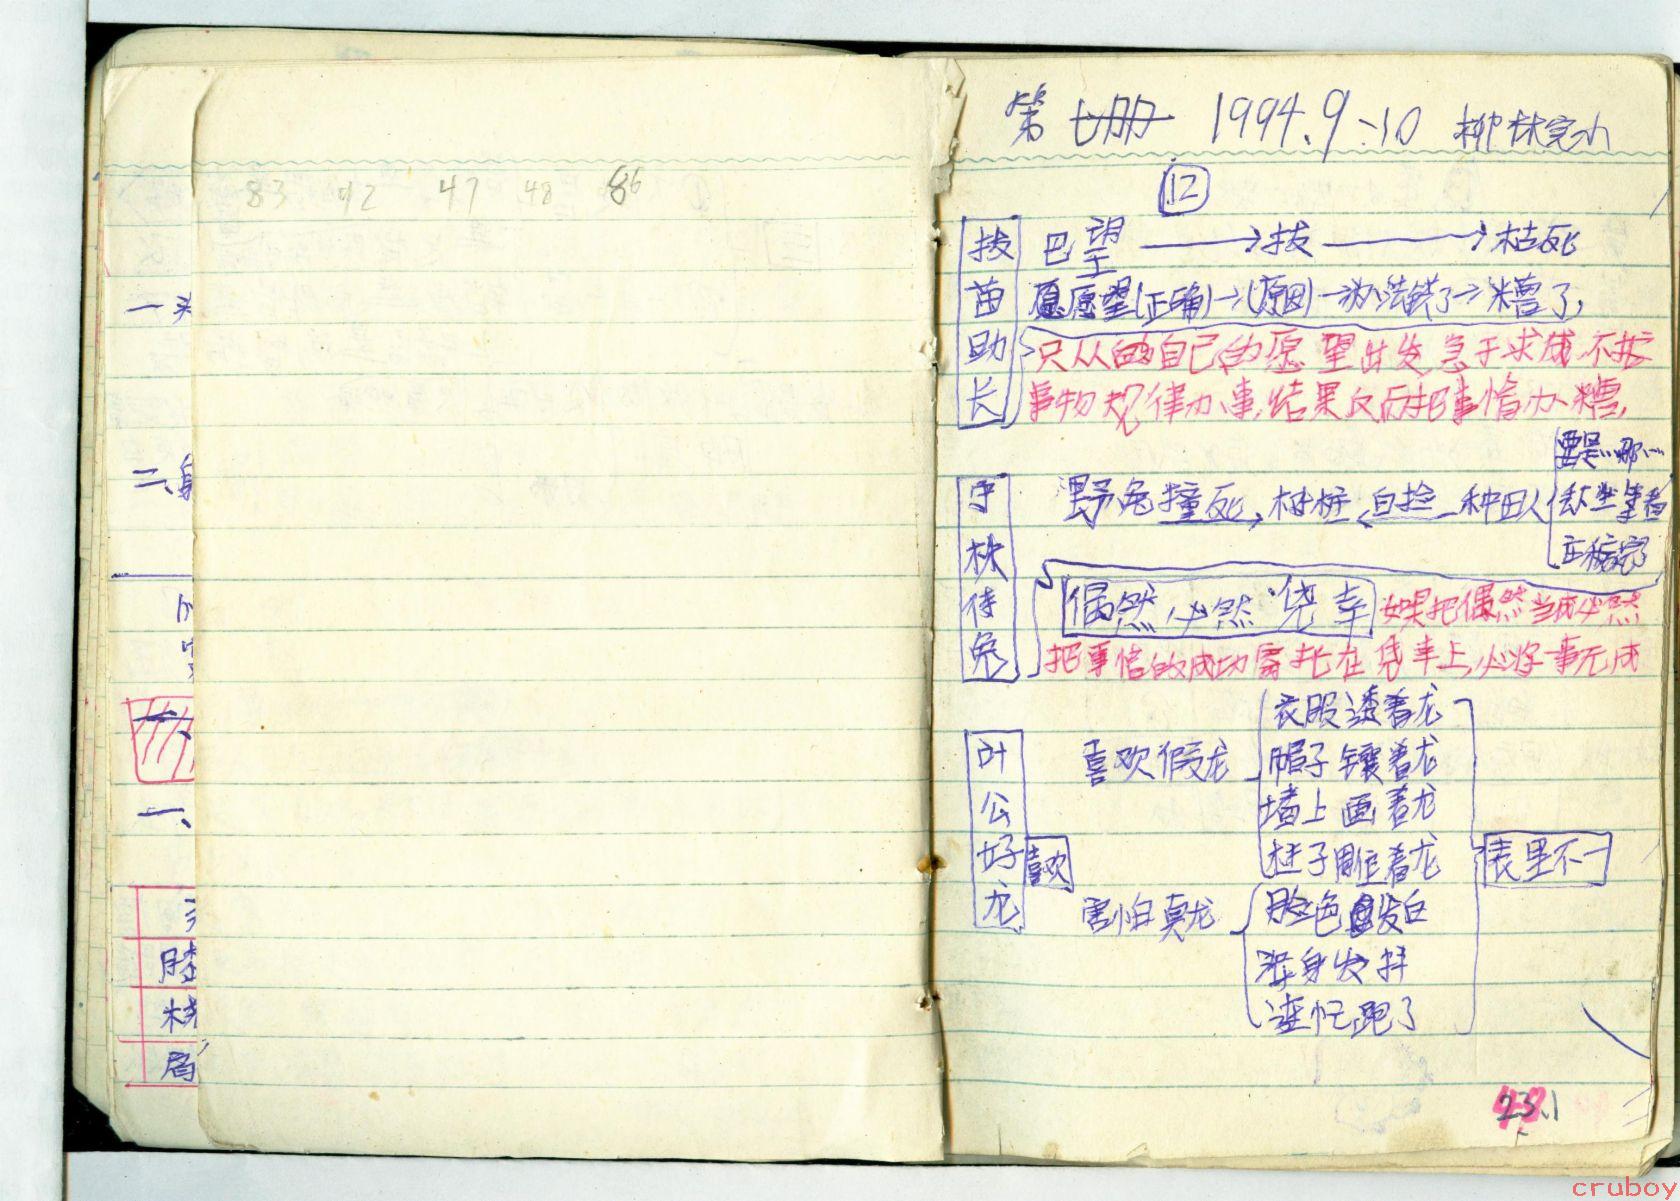 83 92 47 48 86
一、
二、
一、
第七册 1994.9-10 柳林完小
12
拔苗助长
巴望 → 拔 → 枯死
愿愿望(正确)→(原因)→办法错了→糟了,
只从自己的愿望出发急于求成,不按
事物规律办事,结果反而把事情办糟,
守株待兔
野兔撞死 → 树桩 ← 白捡 种田人
要是…哪…
丢坐等着
庄稼完了
偶然 必然 饶幸 如果把偶然当成必然
把事情的成功寄托在侥幸上,必将一事无成
叶公好龙
喜欢
喜欢假龙
衣服透着龙
帽子镶着龙
墙上画着龙
柱子雕着龙
表里不一
害怕真龙
脸色发白
浑身发抖
连忙跑了
23.1
cruboy